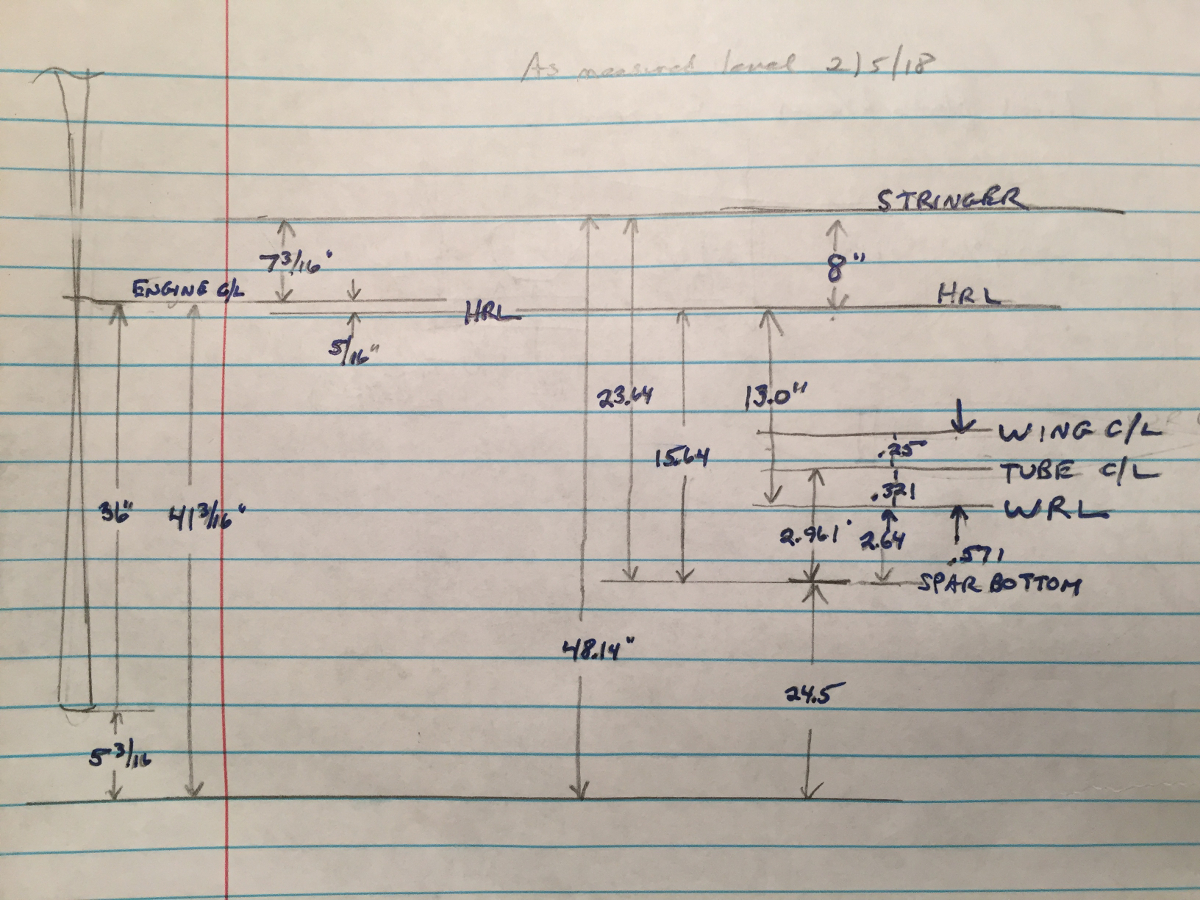 As measured level 2/5/18
STRINGER
7 3/16"
8"
ENGINE C/L
HRL
HRL
5/16"
23.64
13.0"
WING C/L
.25
15.64
TUBE C/L
.321
36"
41 3/16"
WRL
2.961"
2.64
.571
SPAR BOTTOM
48.14"
24.5
5 3/16